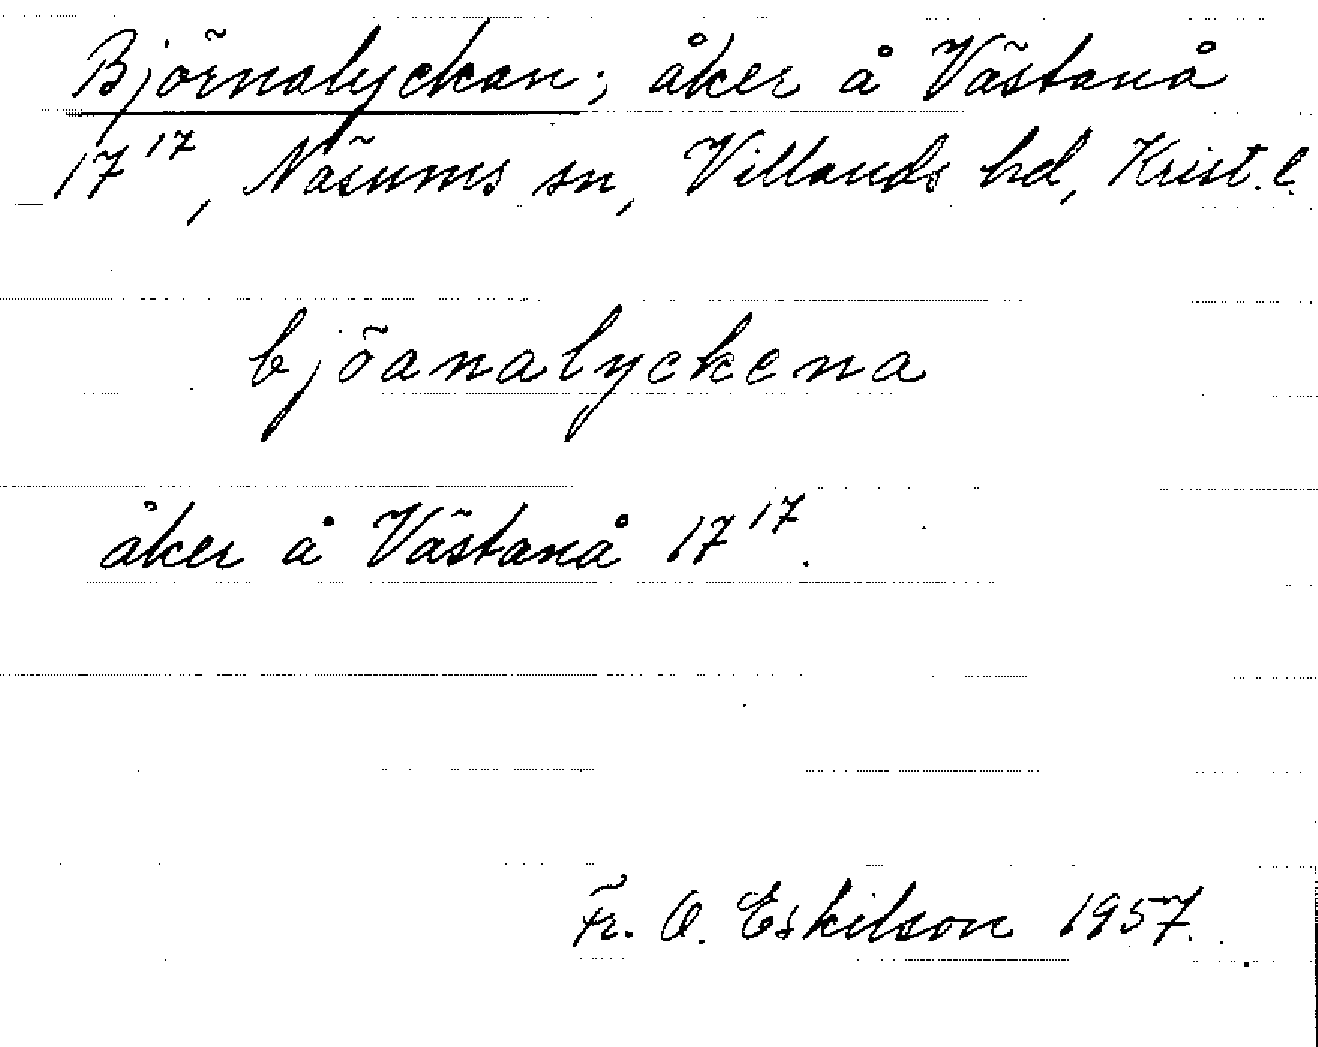 Björnalyckan; åker å Västanå
17¹⁷, Näsums sn, Villands hd, Krist. l.
bjöanalyckena
åker å Västanå 17¹⁷.
Fr. O. Eskilson 1957.